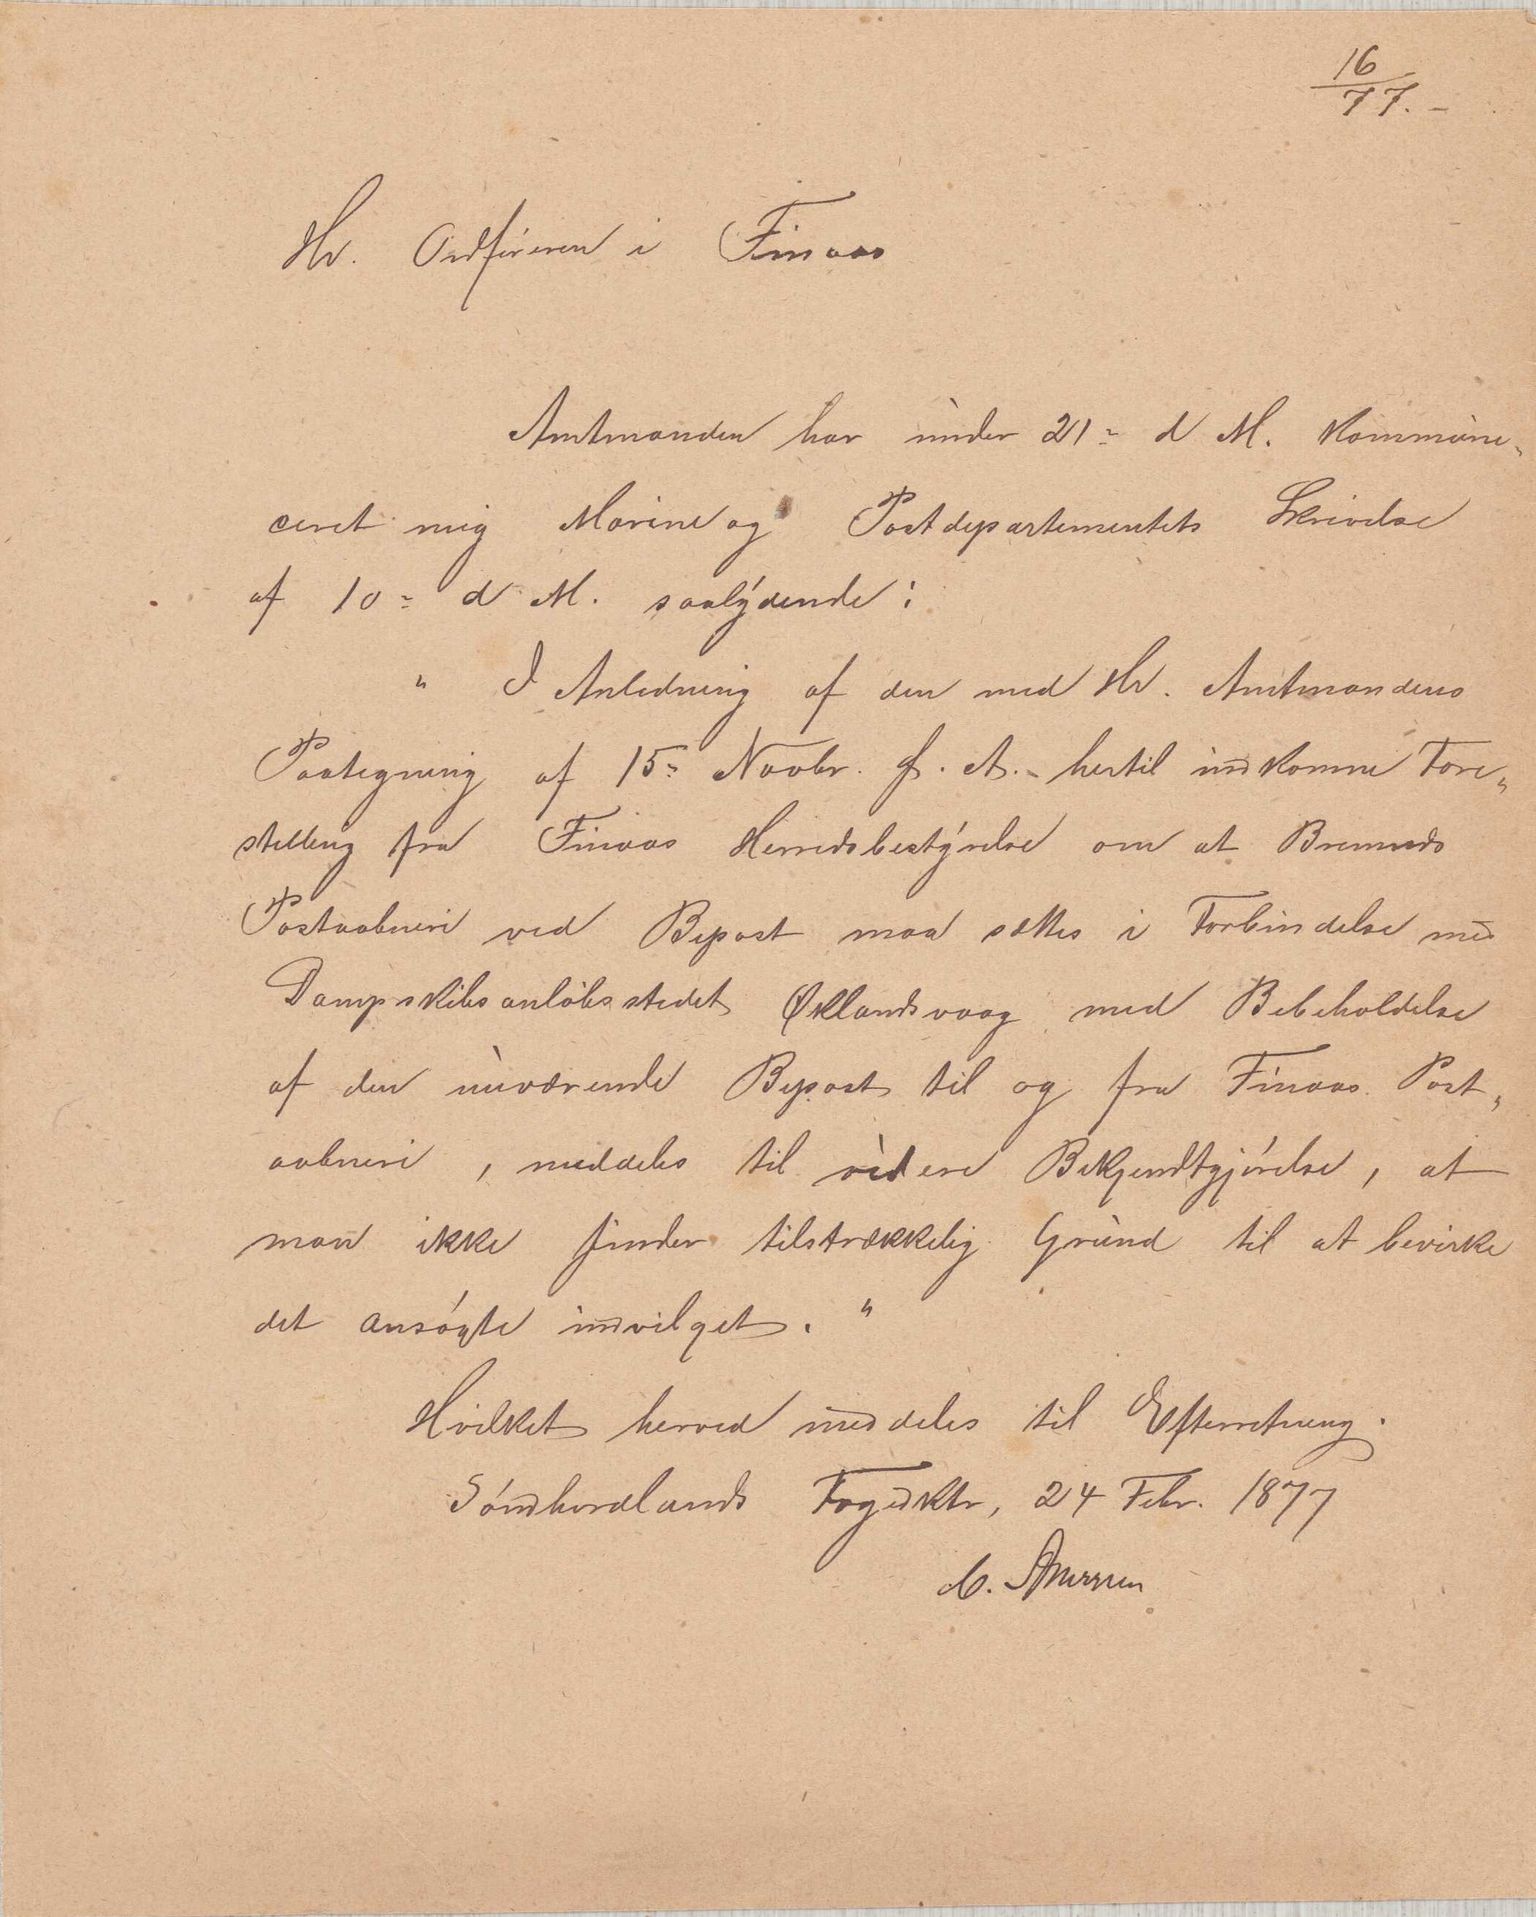 16
77. –
Hr. Ordføreren i Finaas
Amtmanden har under 21= d M. kommuni-
ceret mig Marine og Postdepartementets Skrivelse
af 10= d M. saalydende:
" I Anledning af den med Hr. Amtmandens
Paategning af 15= Novbr. f. A. – hertil indkomne Fore-
stilling fra Finaas Herredsbestyrelse om at Bremnæs
Postaabneri ved Bipost maa sættes i Forbindelse med
Dampskibsanløbsstedet Øklandsvaag med Bibeholdelse
af den nuværende Bipost til og fra Finaas Post-
aabneri, meddeles til videre Bekjendtgjørelse, at
man ikke finder tilstrækkelig Grund til at bevirke
det ansøgte indvilget. "
Hvilket herved meddeles til Efterretning.
Søndhordlands Fogedktr, 24 Febr. 1877